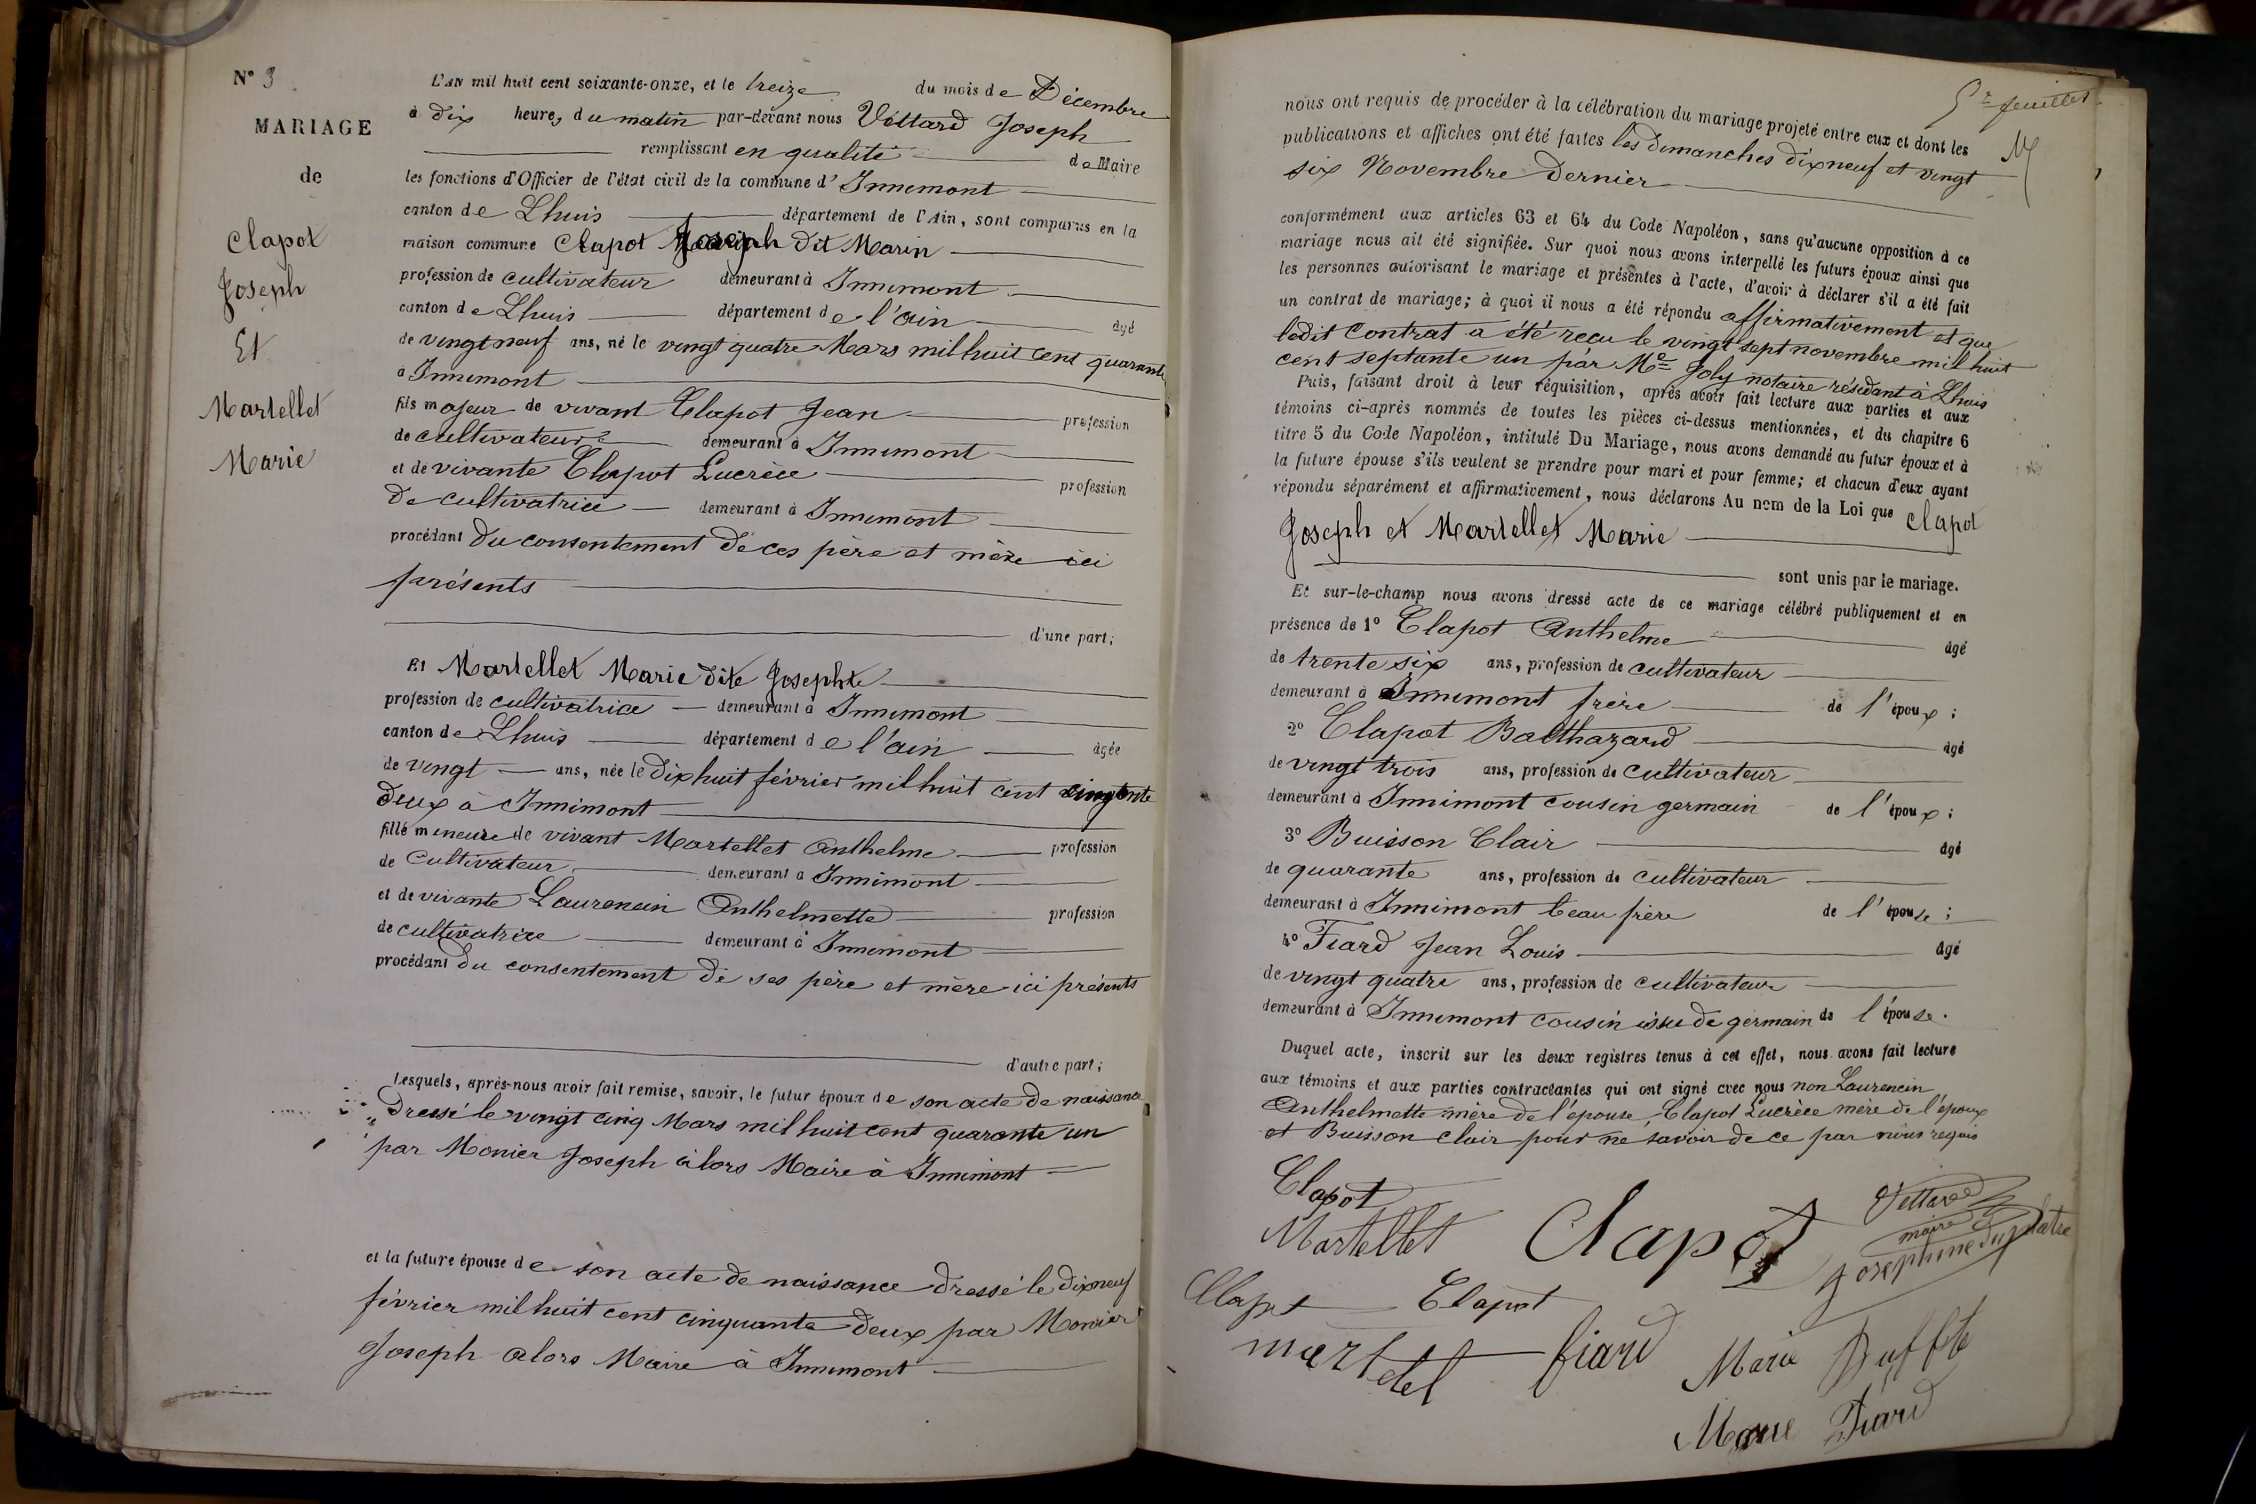 N° 3
MARIAGE
de
Clapot
Joseph
Et
Martellet
Marie
L'AN mil huit cent soixante-onze, et le treize du mois de Décembre
à dix heures du matin par-devant nous Vettard Joseph
remplissant en qualité de Maire
les fonctions d'Officier de l'état civil de la commune d' Innimont
canton de Lhuis département de l'Ain, sont comparus en la
maison commune Clapot Joseph dit Marin
profession de cultivateur demeurant à Innimont
canton de Lhuis département de l'ain âgé
de vingt neuf ans, né le vingt quatre Mars mil huit cent quarante
à Innimont
fils majeur de vivant Clapot Jean profession
de cultivateur demeurant à Innimont
et de vivante Clapot Lucrèce profession
de cultivatrice demeurant à Innimont
procédant du consentement de ces père et mère ici
présents
d'une part;
Et Martellet Marie dite Josephte
profession de cultivatrice demeurant à Innimont
canton de Lhuis département de l'ain âgée
de vingt ans, née le dix huit février mil huit cent
deux à Innimont
fille mineure de vivant Martellet Anthelme profession
de Cultivateur demeurant à Innimont
et de vivante Laurencin Anthelmette profession
de cultivatrice demeurant à Innimont
procédant du consentement de ses père et mère ici présents
d'autre part;
Lesquels, après-nous avoir fait remise, savoir, le futur époux de son acte de naissance
Dressé le vingt cinq Mars mil huit cent quarante un
par Monier Joseph alors Maire à Innimont
et la future épouse de son acte de naissance dressé le dix neuf
février mil huit cent cinquante deux par Monier
Joseph alors Maire à Innimont
5e feuillet
nous ont requis de procéder à la célébration du mariage projeté entre eux et dont les
publications et affiches ont été faites les dimanches dix neuf et vingt
six Novembre dernier
conformément aux articles 63 et 64 du Code Napoléon, sans qu'aucune opposition à ce
mariage nous ait été signifiée. Sur quoi nous avons interpellé les futurs époux ainsi que
les personnes autorisant le mariage et présentes à l'acte, d'avoir à déclarer s'il a été fait
un contrat de mariage; à quoi il nous a été répondu affirmativement et que
ledit contrat a été reçu le vingt sept novembre mil huit
cent septante un par Me Joly notaire résidant à Lhuis
Puis, faisant droit à leur réquisition, après avoir fait lecture aux parties et aux
témoins ci-après nommés de toutes les pièces ci-dessus mentionnées, et du chapitre 6
titre 5 du Code Napoléon, intitulé Du Mariage, nous avons demandé au futur époux et à
la future épouse s'ils veulent se prendre pour mari et pour femme; et chacun d'eux ayant
répondu séparément et affirmativement, nous déclarons Au nom de la Loi que Clapot
Joseph et Martellet Marie
sont unis par le mariage.
Et sur-le-champ nous avons dressé acte de ce mariage célébré publiquement et en
présence de 1° Clapot Anthelme âgé
de trente six ans, profession de cultivateur
demeurant à Innimont frère de l'époux;
2° Clapot Balthazard âgé
de vingt trois ans, profession de cultivateur
demeurant à Innimont cousin germain de l'époux;
3° Buisson Clair âgé
de quarante ans, profession de cultivateur
demeurant à Innimont beau frère de l'épouse;
4° Fiard Jean Louis âgé
de vingt quatre ans, profession de cultivateur
demeurant à Innimont cousin issu de germain de l'épouse.
Duquel acte, inscrit sur les deux registres tenus à cet effet, nous avons fait lecture
aux témoins et aux parties contractantes qui ont signé avec nous non Laurencin
Anthelmette mère de l'épouse, Clapot Lucrèce mère de l'époux
et Buisson Clair pour ne savoir de ce par nous requis
Clapot
Martellet Clapot Vettard
maire
Josephine Duplatre
Clapot Clapot
martelet fiard Marie Buffte
Marie Fiard